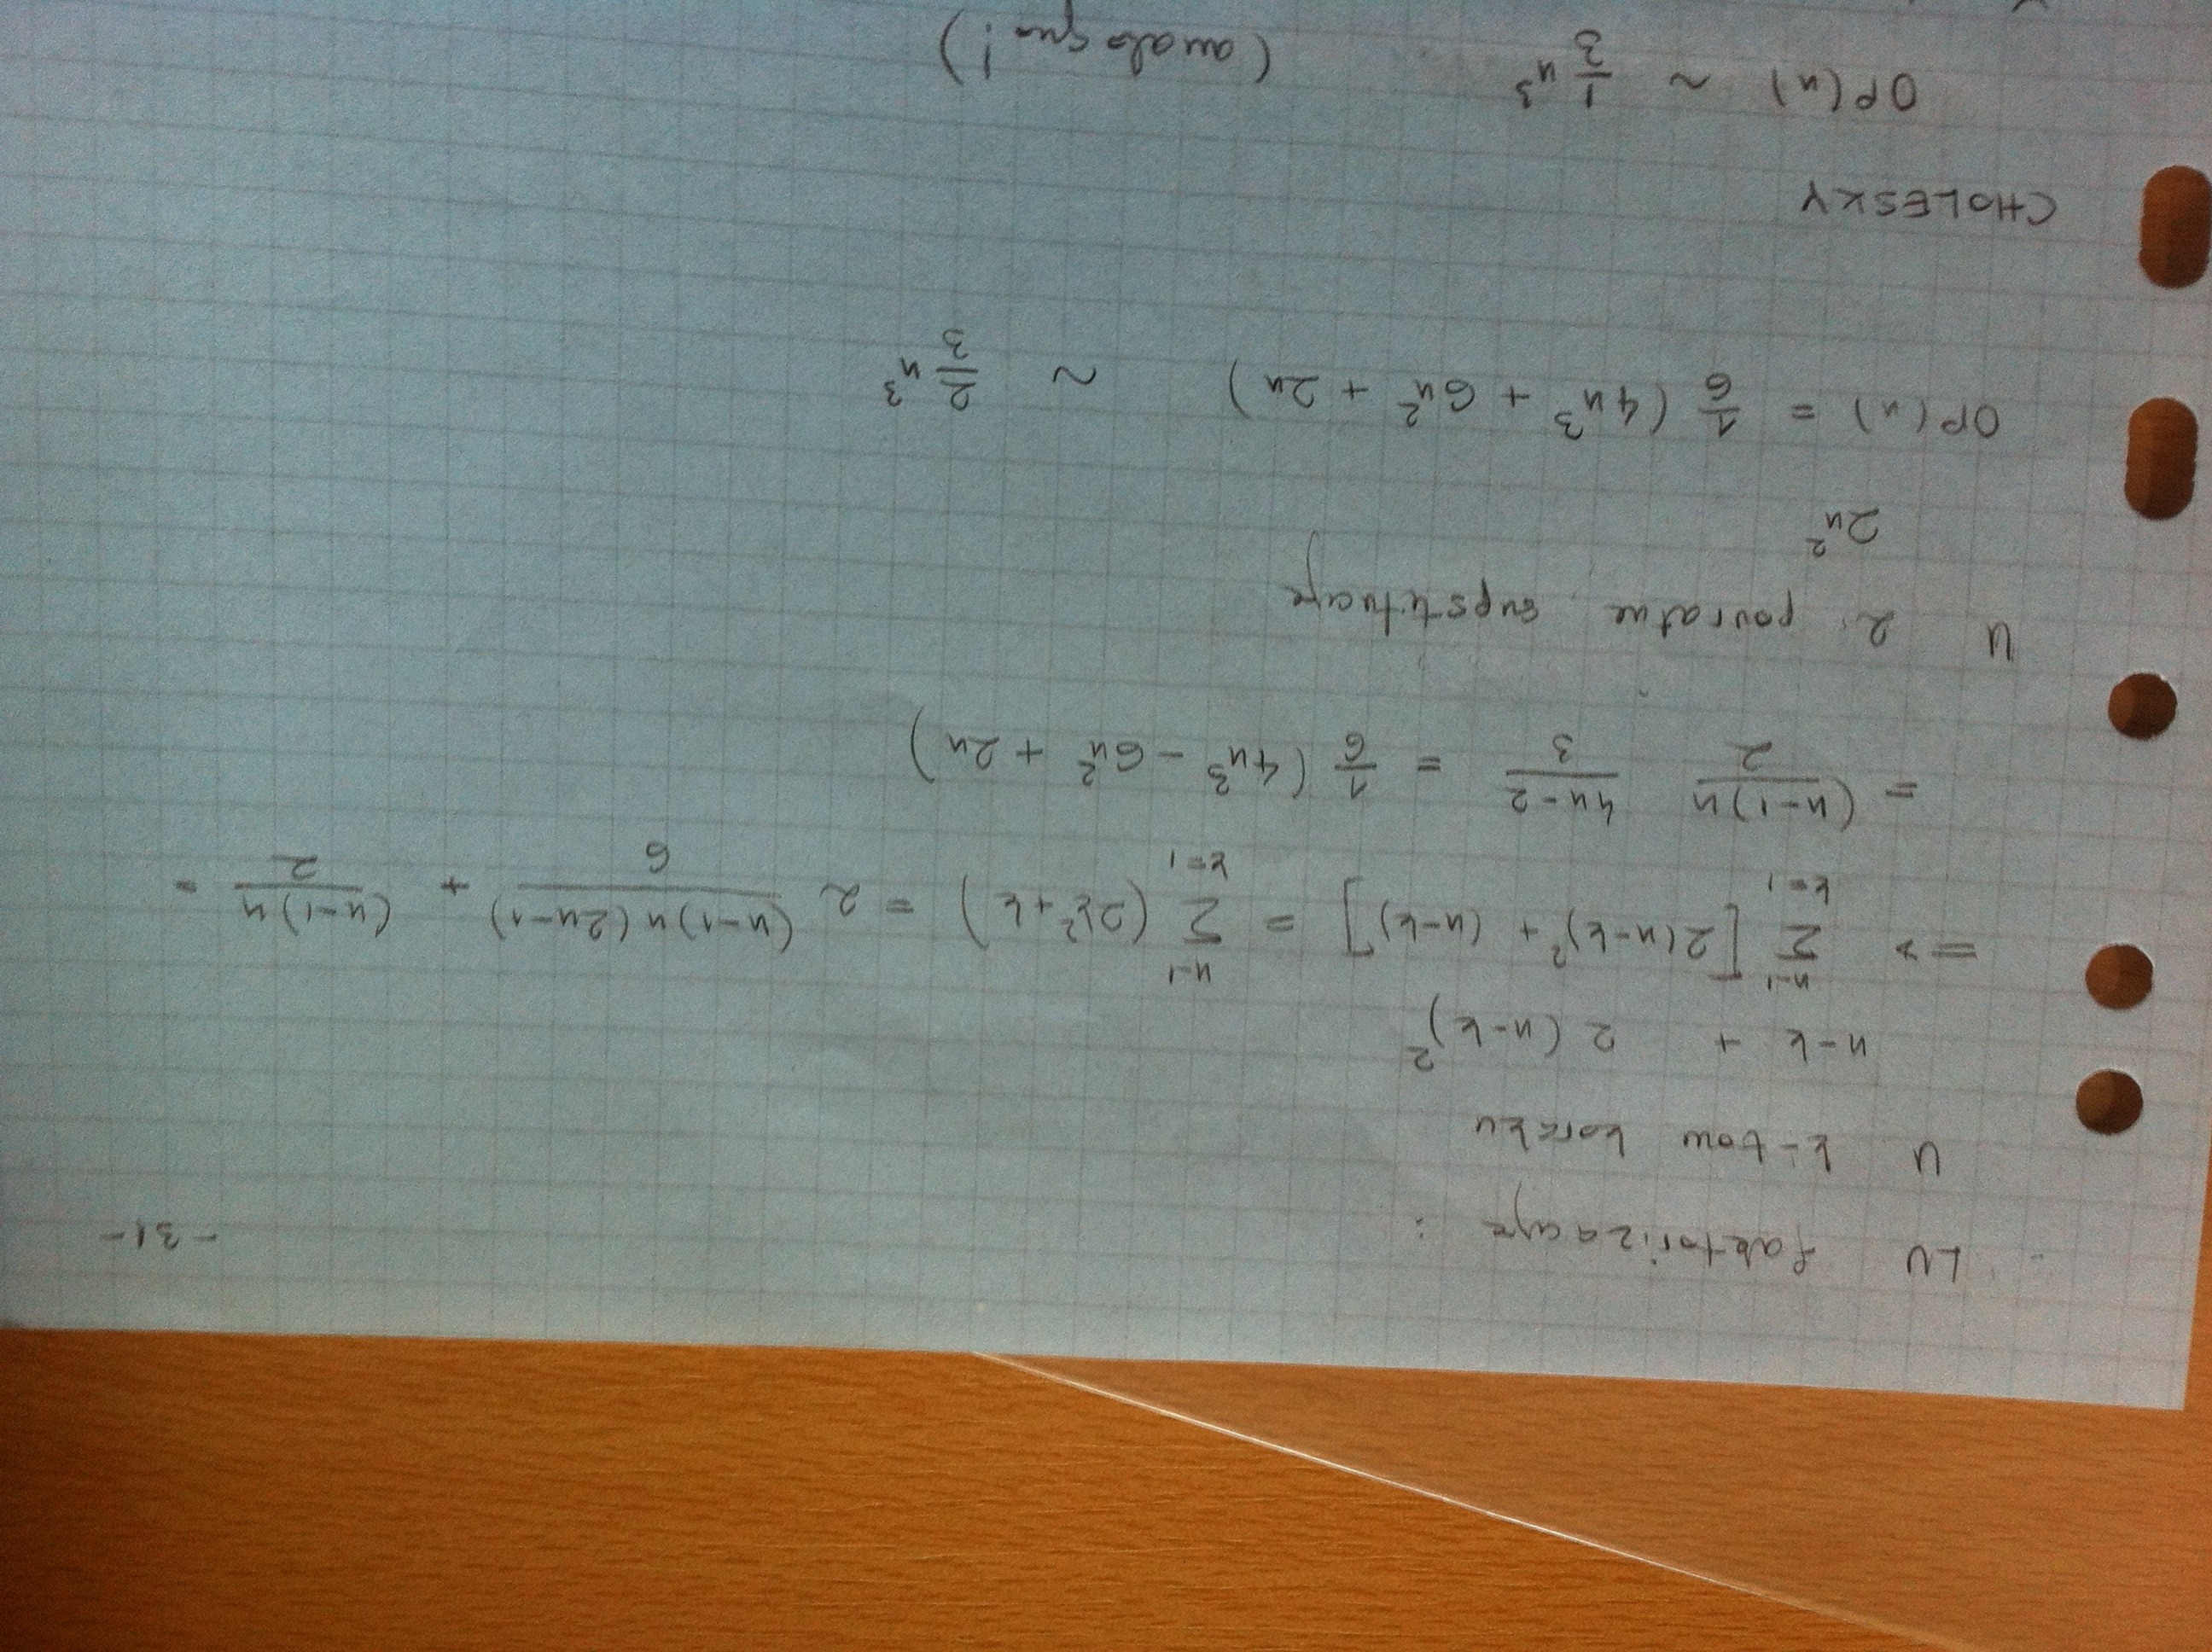 -31-
LU faktorizacije :
U k-tom koraku
n-k + 2(n-k)²
=> \sum_{k=1}^{n-1} [2(n-k)² + (n-k)] = \sum_{k=1}^{n-1} (2k²+k) = 2 \frac{(n-1)n(2n-1)}{6} + \frac{(n-1)n}{2} =
= \frac{(n-1)n}{2} \frac{4n-2}{3} = \frac{1}{6} (4n³ - 6n² + 2n)
U 2 povratne supstitucije
2n²
OP(n) = \frac{1}{6} (4n³ + 6n² + 2n) ~ \frac{2}{3} n³
CHOLESKY
OP(n) ~ \frac{1}{3} n³ (analogno!)